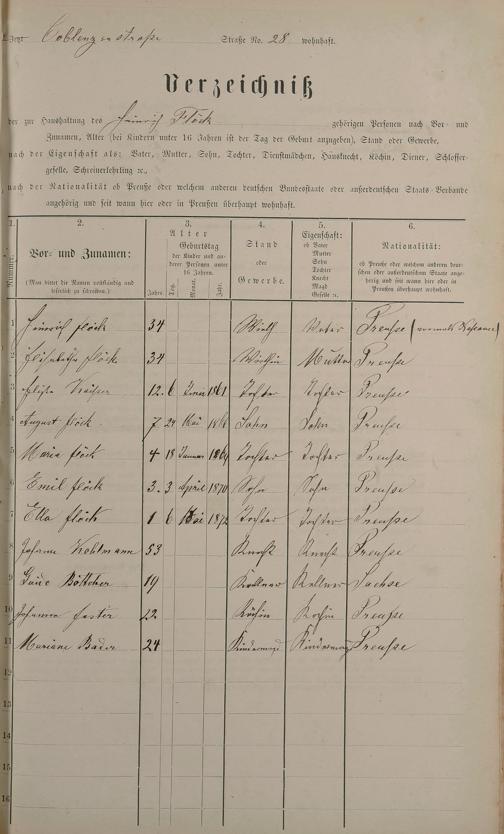 Jetzt Coblenzerstraße Straße No. 28 wohnhaft.
Verzeichniß
der zur Haushaltung des Heinrich Flöck gehörigen Personen nach Vor- und
Zunamen, Alter (bei Kindern unter 16 Jahren ist der Tag der Geburt anzugeben), Stand oder Gewerbe,
nach der Eigenschaft als: Vater, Mutter, Sohn, Tochter, Dienstmädchen, Hausknecht, Köchin, Diener, Schlosser-
geselle, Schreinerlehrling ꝛc.,
nach der Nationalität ob Preuße oder welchem anderen deutschen Bundesstaate oder außerdeutschen Staats-Verbande
angehörig und seit wann hier oder in Preußen überhaupt wohnhaft.
1. 2. 3. 4. 5. 6.
Nummer.
Vor- und Zunamen:
(Man bittet die Namen vollständig und
leserlich zu schreiben.)
Alter
Geburtstag
der Kinder und an-
derer Personen unter
16 Jahren.
Jahre. Tag. Monat. Jahr.
Stand
oder
Gewerbe.
Eigenschaft:
ob Vater
Mutter
Sohn
Tochter
Knecht
Magd
Geselle ꝛc.
Nationalität:
ob Preuße oder welchem anderen deut-
schen oder außerdeutschen Staate ange-
hörig und seit wann hier oder in
Preußen überhaupt wohnhaft.
1 Heinrich Flöck 34 Wirth Vater Preuße (vormals Nassauer)
2 Elisabetha Flöck 34 Wirthin Mutter Preuße
3 12. 6 1861 Tochter Tochter Preuße
4 August Flöck 7 Mai Sohn Sohn Preuße
5 Maria Flöck 4 18 Januar 1869 Tochter Tochter Preuße
6 Emil Flöck 3. 3 April 1870 Sohn Sohn Preuße
7 Ella Flöck 1 6 Mai 1872 Tochter Tochter Preuße
8 53 Knecht Knecht Preuße
9 Böttcher 19 Kellner Kellner Sachse
10 Johanna 22 Köchin Köchin Preuße
11 Mariane Bader 24 Kindermagd Kindermagd Preuße
12
13
14
15
16